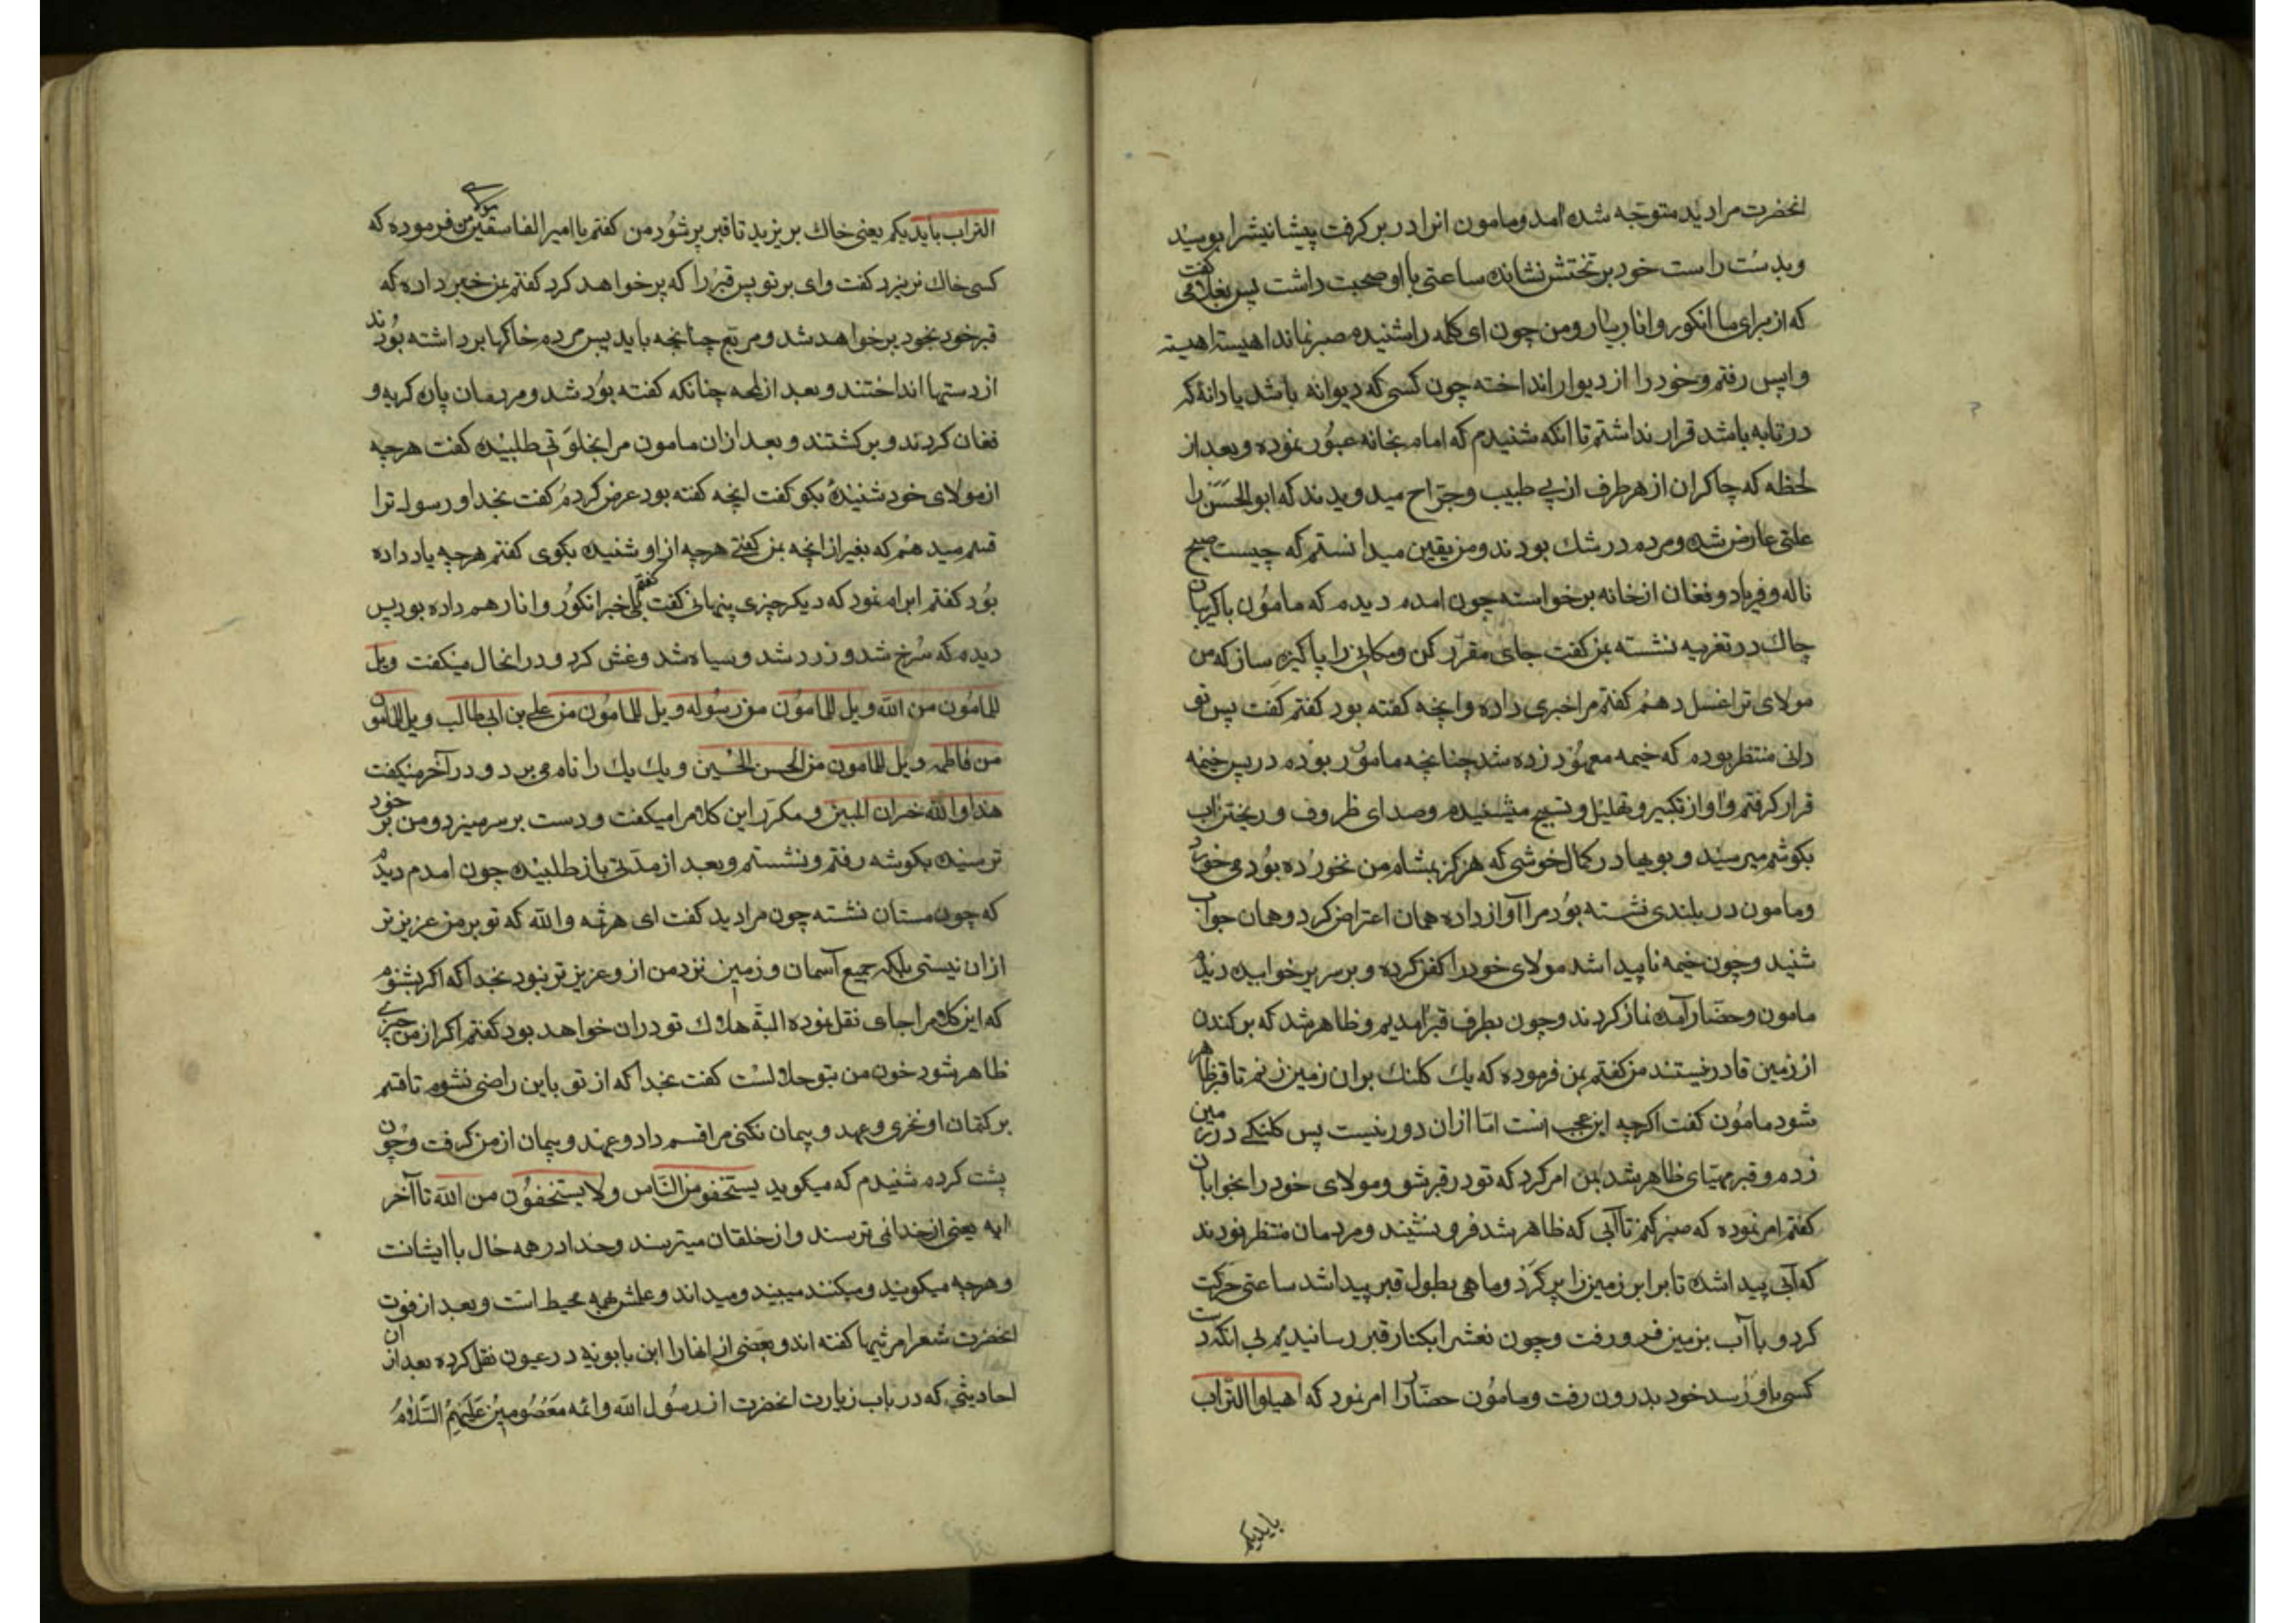 انحضرت مرا دید متوجه شده امد و مامون انرا در بر کرفت پیشانیش را بوسید
و بدست راست خود بر تختش نشانده ساعتی با او صحبت داشت پس بغلامی گفت
که از برای ما انکور و انار بیار و من چون ای کلمه را شنیدم صبر نماند اهسته اهسته
واپس رفتم و خود را از دیوار انداخته چون کسی که دیوانه باشد یا دانهٔ که
در تابه باشد قرار نداشتم تا انکه شنیدم که امام بخانه عبور نموده و بعد از
لحظه که چاکران از هر طرف از پی طبیب و جراح میدویدند که ابوالحسن را
علتی عارض شده و مردم در شک بودند و من یقین میدانستم که چیست صبح
ناله و فریاد و فغان از خانه برخواسته چون امدم دیدم که مامون با کریبان
چاک در تعزیه نشسته بمن کفت جای مقرر کن و مکانی را پاکیزه ساز که من
مولای ترا غسل دهم کفتم مرا خبری داده و انچه کفته بود کفتم کفت پس تو
دانی منتظر بودم که خیمه معهود زده شد چنانچه مامور بودم در پس خیمه
قرار کرفتم و اواز تکبیر و تهلیل و تسبیح میشنیدم و صدای ظروف و ریختن اب
بکوشم میرسید و بویها در کمال خوشی که هرکز بمشام من نخورده بود می خورد
و مامون در بلندی نشسته بود مرا آواز داده همان اعتراض کرد و همان جواب
شنید و چون خیمه ناپیدا شد مولای خود را کفن کرده و بر سریر خوابیده دیدم
مامون و حضار آمده نماز کردند و چون بطرف قبر امدیم و ظاهر شد که بر کندن
از زمین قادر نیستند من کفتم بمن فرموده که یک کلنک بران زمین زنم تا قبر ظاهر
شود مامون کفت اکرچه این عجب است اما ازان دور نیست پس کلنکی در زمین
زدم و قبر مهیای ظاهر شد بمن امر کرد که تو در قبر شو و مولای خود را بخوابان
کفتم امر نموده که صبر کنم تا آبی که ظاهر شد فرو نشیند و مردمان منتظر بودند
که آبی پیدا شده تا برابر زمین را پر کرد و ماهی بطول قبر پیدا شد ساعتی حرکت
کرد و با آب بزمین فرو رفت و چون نعش را بکنار قبر رسانیدیم بی انکه دست
کسی باو رسد خود بدرون رفت و مامون حضار را امر نمود که اهیلوا التراب
بایدیکم
التراب بایدیکم یعنی خاک بریزید تا قبر پر شود من کفتم یا امیر الفاسقین مولای من فرموده که
کسی خاک نریزد کفت وای بر تو پس قبر را که پر خواهد کرد کفتم بمن خبر داده که
قبر خود بخود پر خواهد شد و مربع چنانچه باید پس مردم خاکها برداشته بودند
از دستها انداختند و بعد از لمحه چنانکه کفته بود شد و مردمان پاره کریه و
فغان کردند و برکشتند و بعد ازان مامون مرا بخلوتی طلبیده کفت هرچه
از مولای خود شنیدهٔ بکو کفت انچه کفته بود عرض کردم کفت بخدا و رسول ترا
قسم میدهم که بغیر از انچه بمن کفتی هرچه از او شنیده بکوی کفتم هرچه یاد داده
بود کفتم ابرام نمود که دیکر چیزی پنهانی کفت کفتم بلی خبر انکور و انار هم داده بود پس
دیدم که سرخ شد و زرد شد و سیاه شد و غش کرد و در انحال میکفت ویل
للمامون من الله ویل للمامون من رسوله ویل للمامون من علی بن ابی طالب ویل للمامون
من فاطمه ویل للمامون من الحسن الحسین و یک یک را نام می برد و در آخر میکفت
هذا والله خسران المبین و مکرر این کلام را میکفت و دست بر سر میزد و من بر خود
ترسیده بکوشه رفتم و نشستم و بعد از مدتی باز طلبیده چون امدم دیدم
که چون مستان نشسته چون مرا دید کفت ای هرثمه والله که تو بر من عزیزتر
ازان نیستی بلکه جمیع آسمان و زمین نزد من از و عزیزتر نبود بخدا که اکر بشنوم
که این کلام را جای نقل نموده البته هلاک تو دران خواهد بود کفتم اکر از من چیزی
ظاهر شود خون من بتو حلالست کفت بخدا که از تو باین راضی نشوم تا قسم
بر کتمان او نخوری و عهد و پیمان نکنی مرا قسم داد و عهد و پیمان از من کرفت و چون
پشت کردم شنیدم که میکوید یستخفون من الناس ولا یستخفون من الله تا آخر
ایه یعنی از خدا نمی ترسند و از خلقان میترسند و خدا در همه حال با ایشانست
و هرچه میکویند و میکنند میبیند و میداند و علمش بهمه محیط است و بعد از فوت
انحضرت شعرا مرثیها کفته اند و بعضی از انها را ابن بابویه در عیون نقل کرده بعد از ان
احادیثی که در باب زیارت انحضرت از رسول الله و ائمه معصومین علیهم السلام